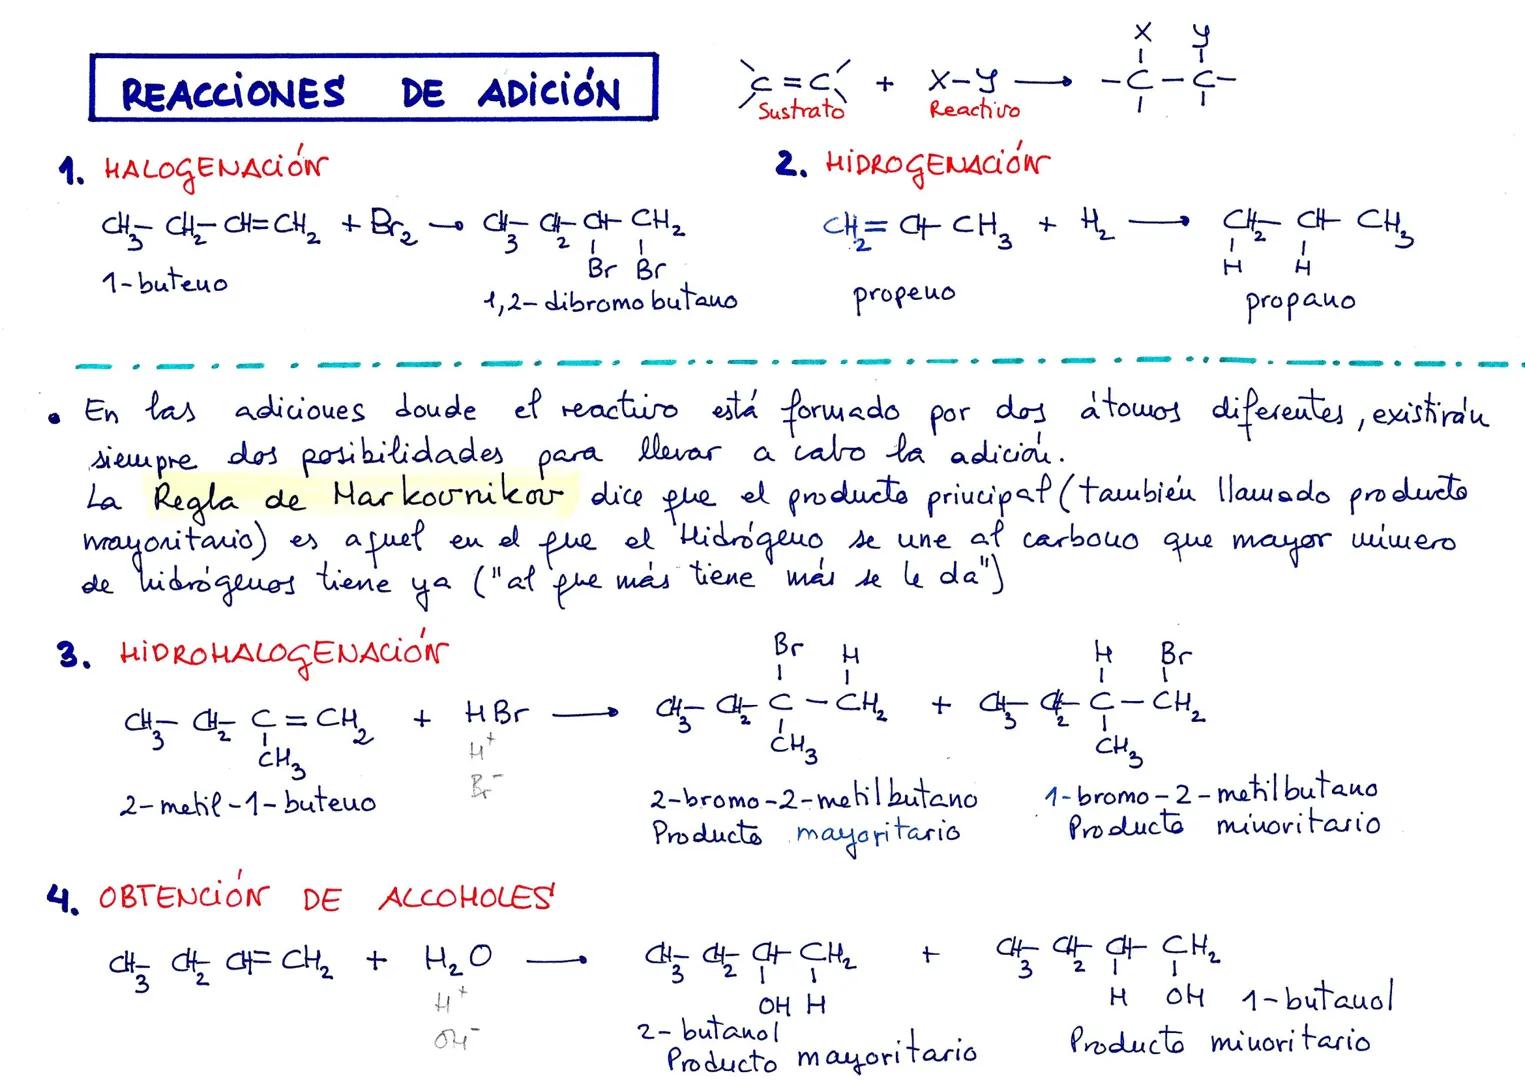 REACCIONES DE ADICIÓN
C=C + X-Y → -C-C-
X Y
Sustrato Reactivo
1. HALOGENACIÓN
CH3-CH2-CH=CH2 + Br2 → CH3-CH2-CH-CH2
Br Br
1-buteno
1,2-dibromobutano
2. HIDROGENACIÓN
CH2=CH-CH3 + H2 → CH2-CH-CH3
H H
propeno
propano
• En las adiciones donde el reactivo está formado por dos átomos diferentes, existirán
siempre dos posibilidades para llevar a cabo la adición.
La Regla de Markovnikov dice que el producto principal (también llamado producto
mayoritario) es aquel en el que el Hidrógeno se une al carbono que mayor número
de hidrógenos tiene ya ("al que más tiene más se le da")
3. HIDROHALOGENACIÓN
Br H H Br
CH3-CH2-C=CH2 + HBr → CH3-CH2-C-CH2 + CH3-CH2-C-CH2
CH3 H+ CH3 CH3
Br-
2-metil-1-buteno 2-bromo-2-metilbutano 1-bromo-2-metilbutano
Producto mayoritario Producto minoritario
4. OBTENCIÓN DE ALCOHOLES
CH3-CH2-CH=CH2 + H2O → CH3-CH2-CH-CH2 + CH3-CH2-CH-CH2
H+ OH H H OH 1-butanol
OH-
2-butanol
Producto mayoritario Producto minoritario